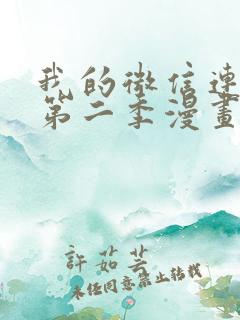 我的微信連
第二季漫畫
許茹芸
未经同意禁止转载